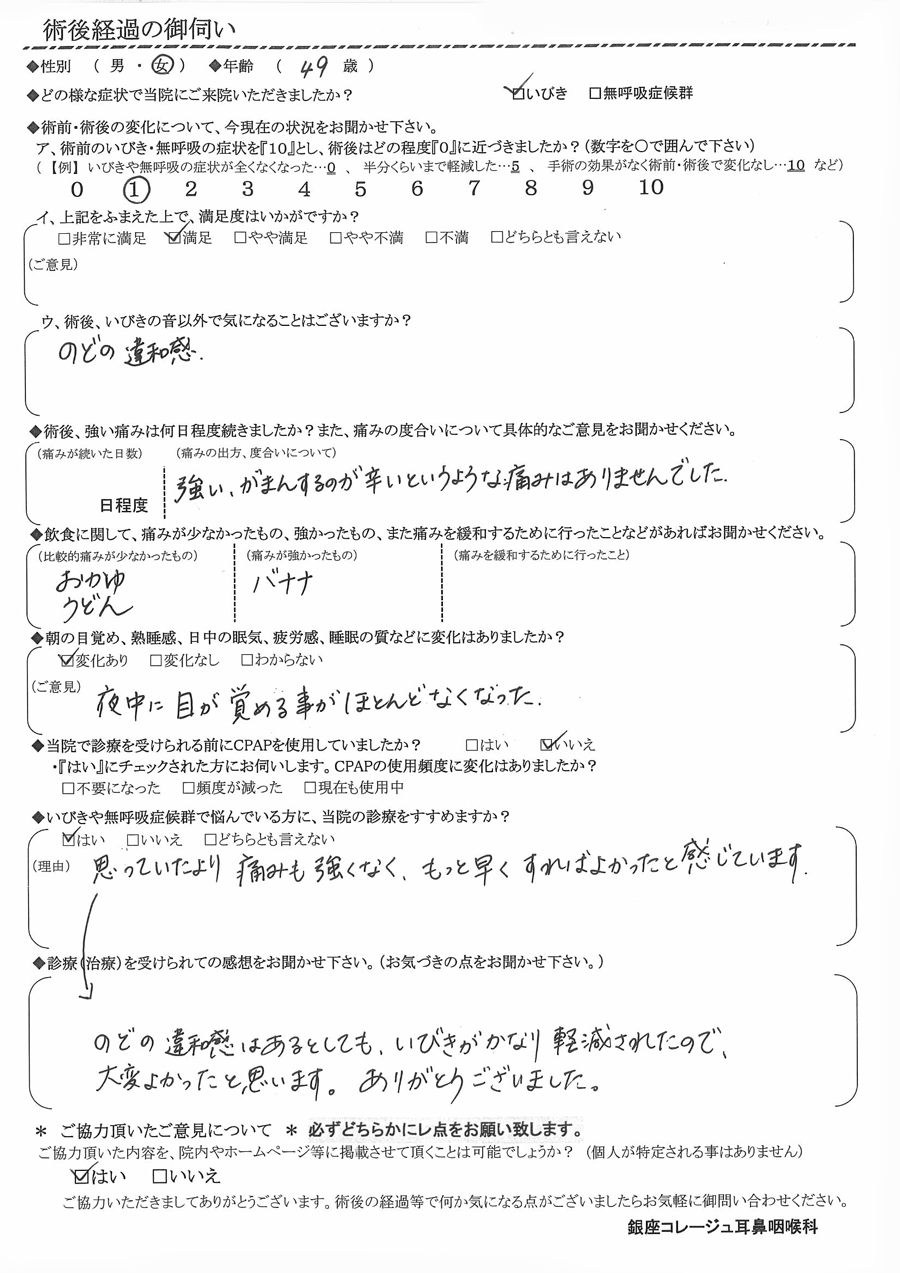 術後経過の御伺い
◆性別 ( 男 ・ 女 ) ◆年齢 ( 49 歳 )
◆どの様な症状で当院にご来院いただきましたか? ☑いびき □無呼吸症候群
◆術前・術後の変化について、今現在の状況をお聞かせ下さい。
ア、術前のいびき・無呼吸の症状を『10』とし、術後はどの程度『0』に近づきましたか?(数字を○で囲んで下さい)
(【例】いびきや無呼吸の症状が全くなくなった…0 、 半分くらいまで軽減した…5 、 手術の効果がなく術前・術後で変化なし…10 など)
0 1 2 3 4 5 6 7 8 9 10
イ、上記をふまえた上で、満足度はいかがですか?
□非常に満足 ☑満足 □やや満足 □やや不満 □不満 □どちらとも言えない
(ご意見)
ウ、術後、いびきの音以外で気になることはございますか?
のどの違和感.
◆術後、強い痛みは何日程度続きましたか?また、痛みの度合いについて具体的なご意見をお聞かせください。
(痛みが続いた日数) (痛みの出方、度合いについて)
強い、がまんするのが辛いというような痛みはありませんでした.
日程度
◆飲食に関して、痛みが少なかったもの、強かったもの、また痛みを緩和するために行ったことなどがあればお聞かせください。
(比較的痛みが少なかったもの) (痛みが強かったもの) (痛みを緩和するために行ったこと)
おかゆ バナナ
うどん
◆朝の目覚め、熟睡感、日中の眠気、疲労感、睡眠の質などに変化はありましたか?
☑変化あり □変化なし □わからない
(ご意見) 夜中に目が覚める事がほとんどなくなった.
◆当院で診療を受けられる前にCPAPを使用していましたか? □はい ☑いいえ
・『はい』にチェックされた方にお伺いします。CPAPの使用頻度に変化はありましたか?
□不要になった □頻度が減った □現在も使用中
◆いびきや無呼吸症候群で悩んでいる方に、当院の診療をすすめますか?
☑はい □いいえ □どちらとも言えない
(理由) 思っていたより痛みも強くなく、もっと早くすればよかったと感じています.
◆診療(治療)を受けられての感想をお聞かせ下さい。(お気づきの点をお聞かせ下さい。)
のどの違和感はあるとしても、いびきがかなり軽減されたので、
大変よかったと思います。ありがとうございました。
* ご協力頂いたご意見について * 必ずどちらかにレ点をお願い致します。
ご協力頂いた内容を、院内やホームページ等に掲載させて頂くことは可能でしょうか? (個人が特定される事はありません)
☑はい □いいえ
ご協力いただきましてありがとうございます。術後の経過等で何か気になる点がございましたらお気軽に御問い合わせください。
銀座コレージュ耳鼻咽喉科